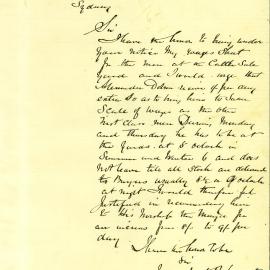 Sydney
Sir
I have the honor to bring under
your notice My wages Sheet
for the men at the Cattle Sale
Yard and I would urge that
Alexander receive per day
extra So as to bring him to same
Scale of wages as the other
First Class men During Monday
and Thursday he has to be at
the Yards at 5 oclock in
Summer and Winter 6 and does
not leave till all Stock are delivered
to Buyers usually 8 or 9 oclock
at night I would therefore feel
Justified in recommending him
to His Worship the Mayor for
an increase from 8/- to 9/- per
day
I have the honor to be
Sir